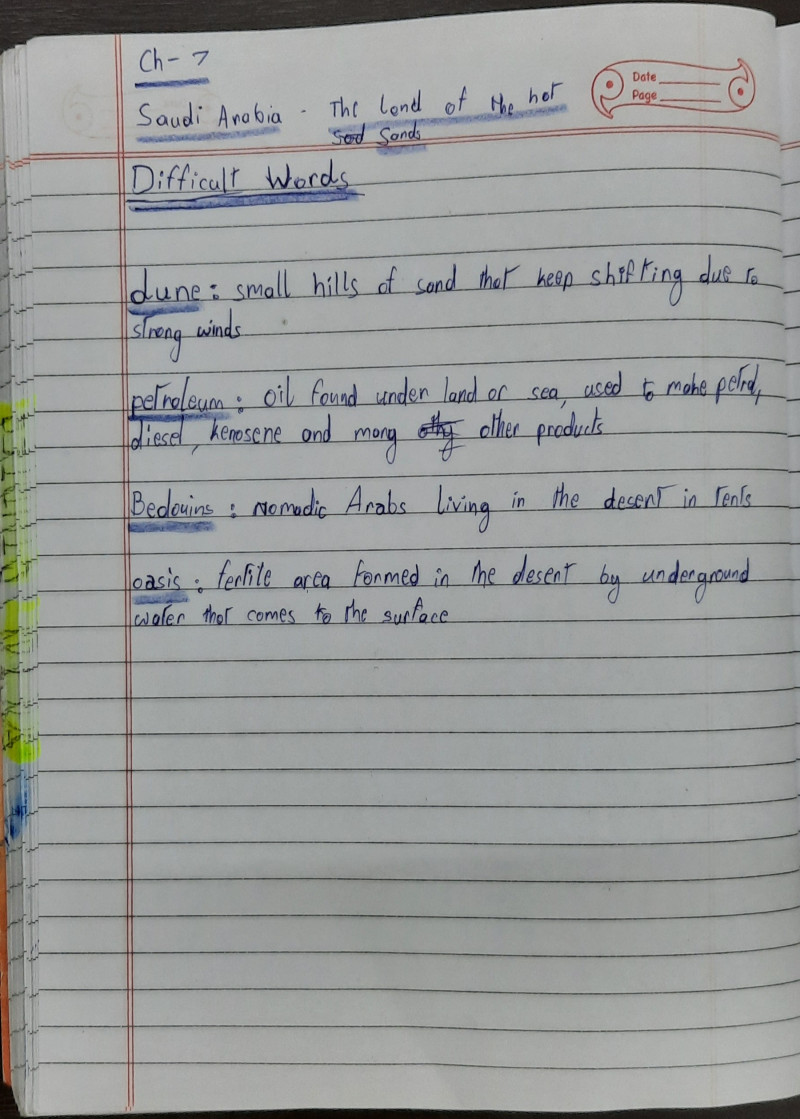 Ch- 7
Date
Page
Saudi Arabia - The land of the hot
Sands
Difficult Words
dune: small hills of sand that keep shifting due to
strong winds
petroleum: oil found under land or sea, used to make petrol,
diesel, kerosene and many other products
Bedouins: Nomadic Arabs living in the desert in tents
oasis: fertile area formed in the desert by underground
water that comes to the surface